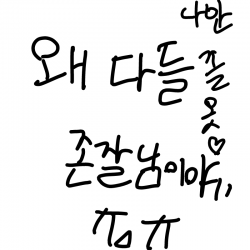 나만
왜 다들
♡
존잘님이야,
ㅠ△ㅠ